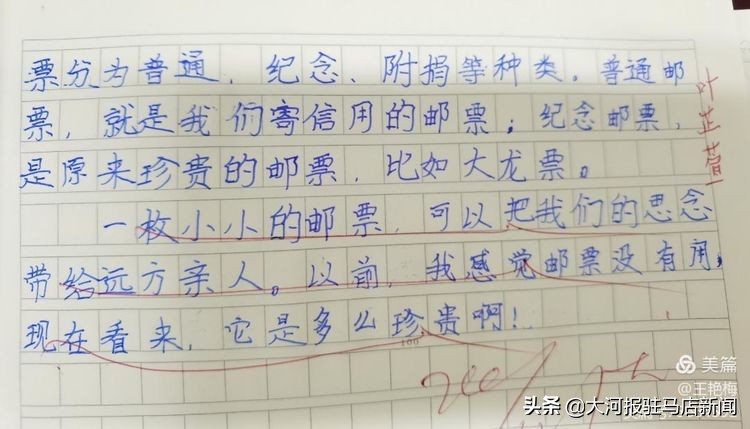 票分为普通、纪念、附捐等种类。普通邮
票，就是我们寄信用的邮票；纪念邮票，
是原来珍贵的邮票，比如大龙票。
一枚小小的邮票，可以把我们的思念
带给远方亲人。以前，我感觉邮票没有用，
现在看来，它是多么珍贵啊！
叶芷萱
100
美篇
@王艳梅
头条 @大河报驻马店新闻